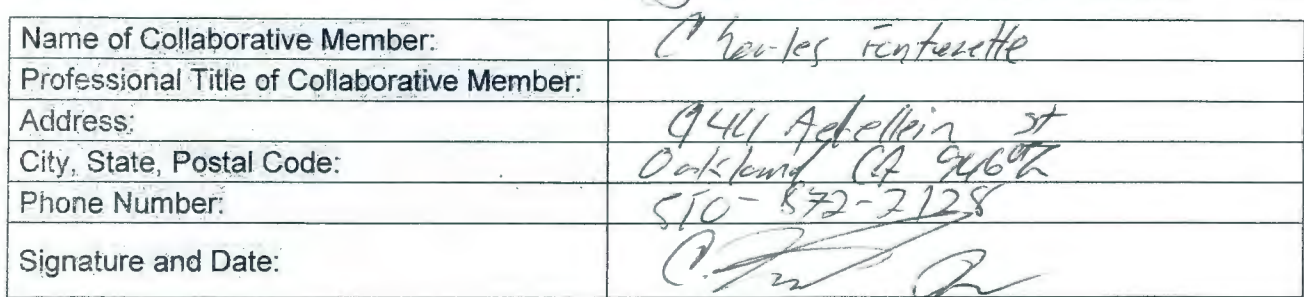 Name of Collaborative Member: Charles
Professional Title of Collaborative Member:
Address: St
City, State, Postal Code: Oakland CA
Phone Number: 510-872-2128
Signature and Date: C.